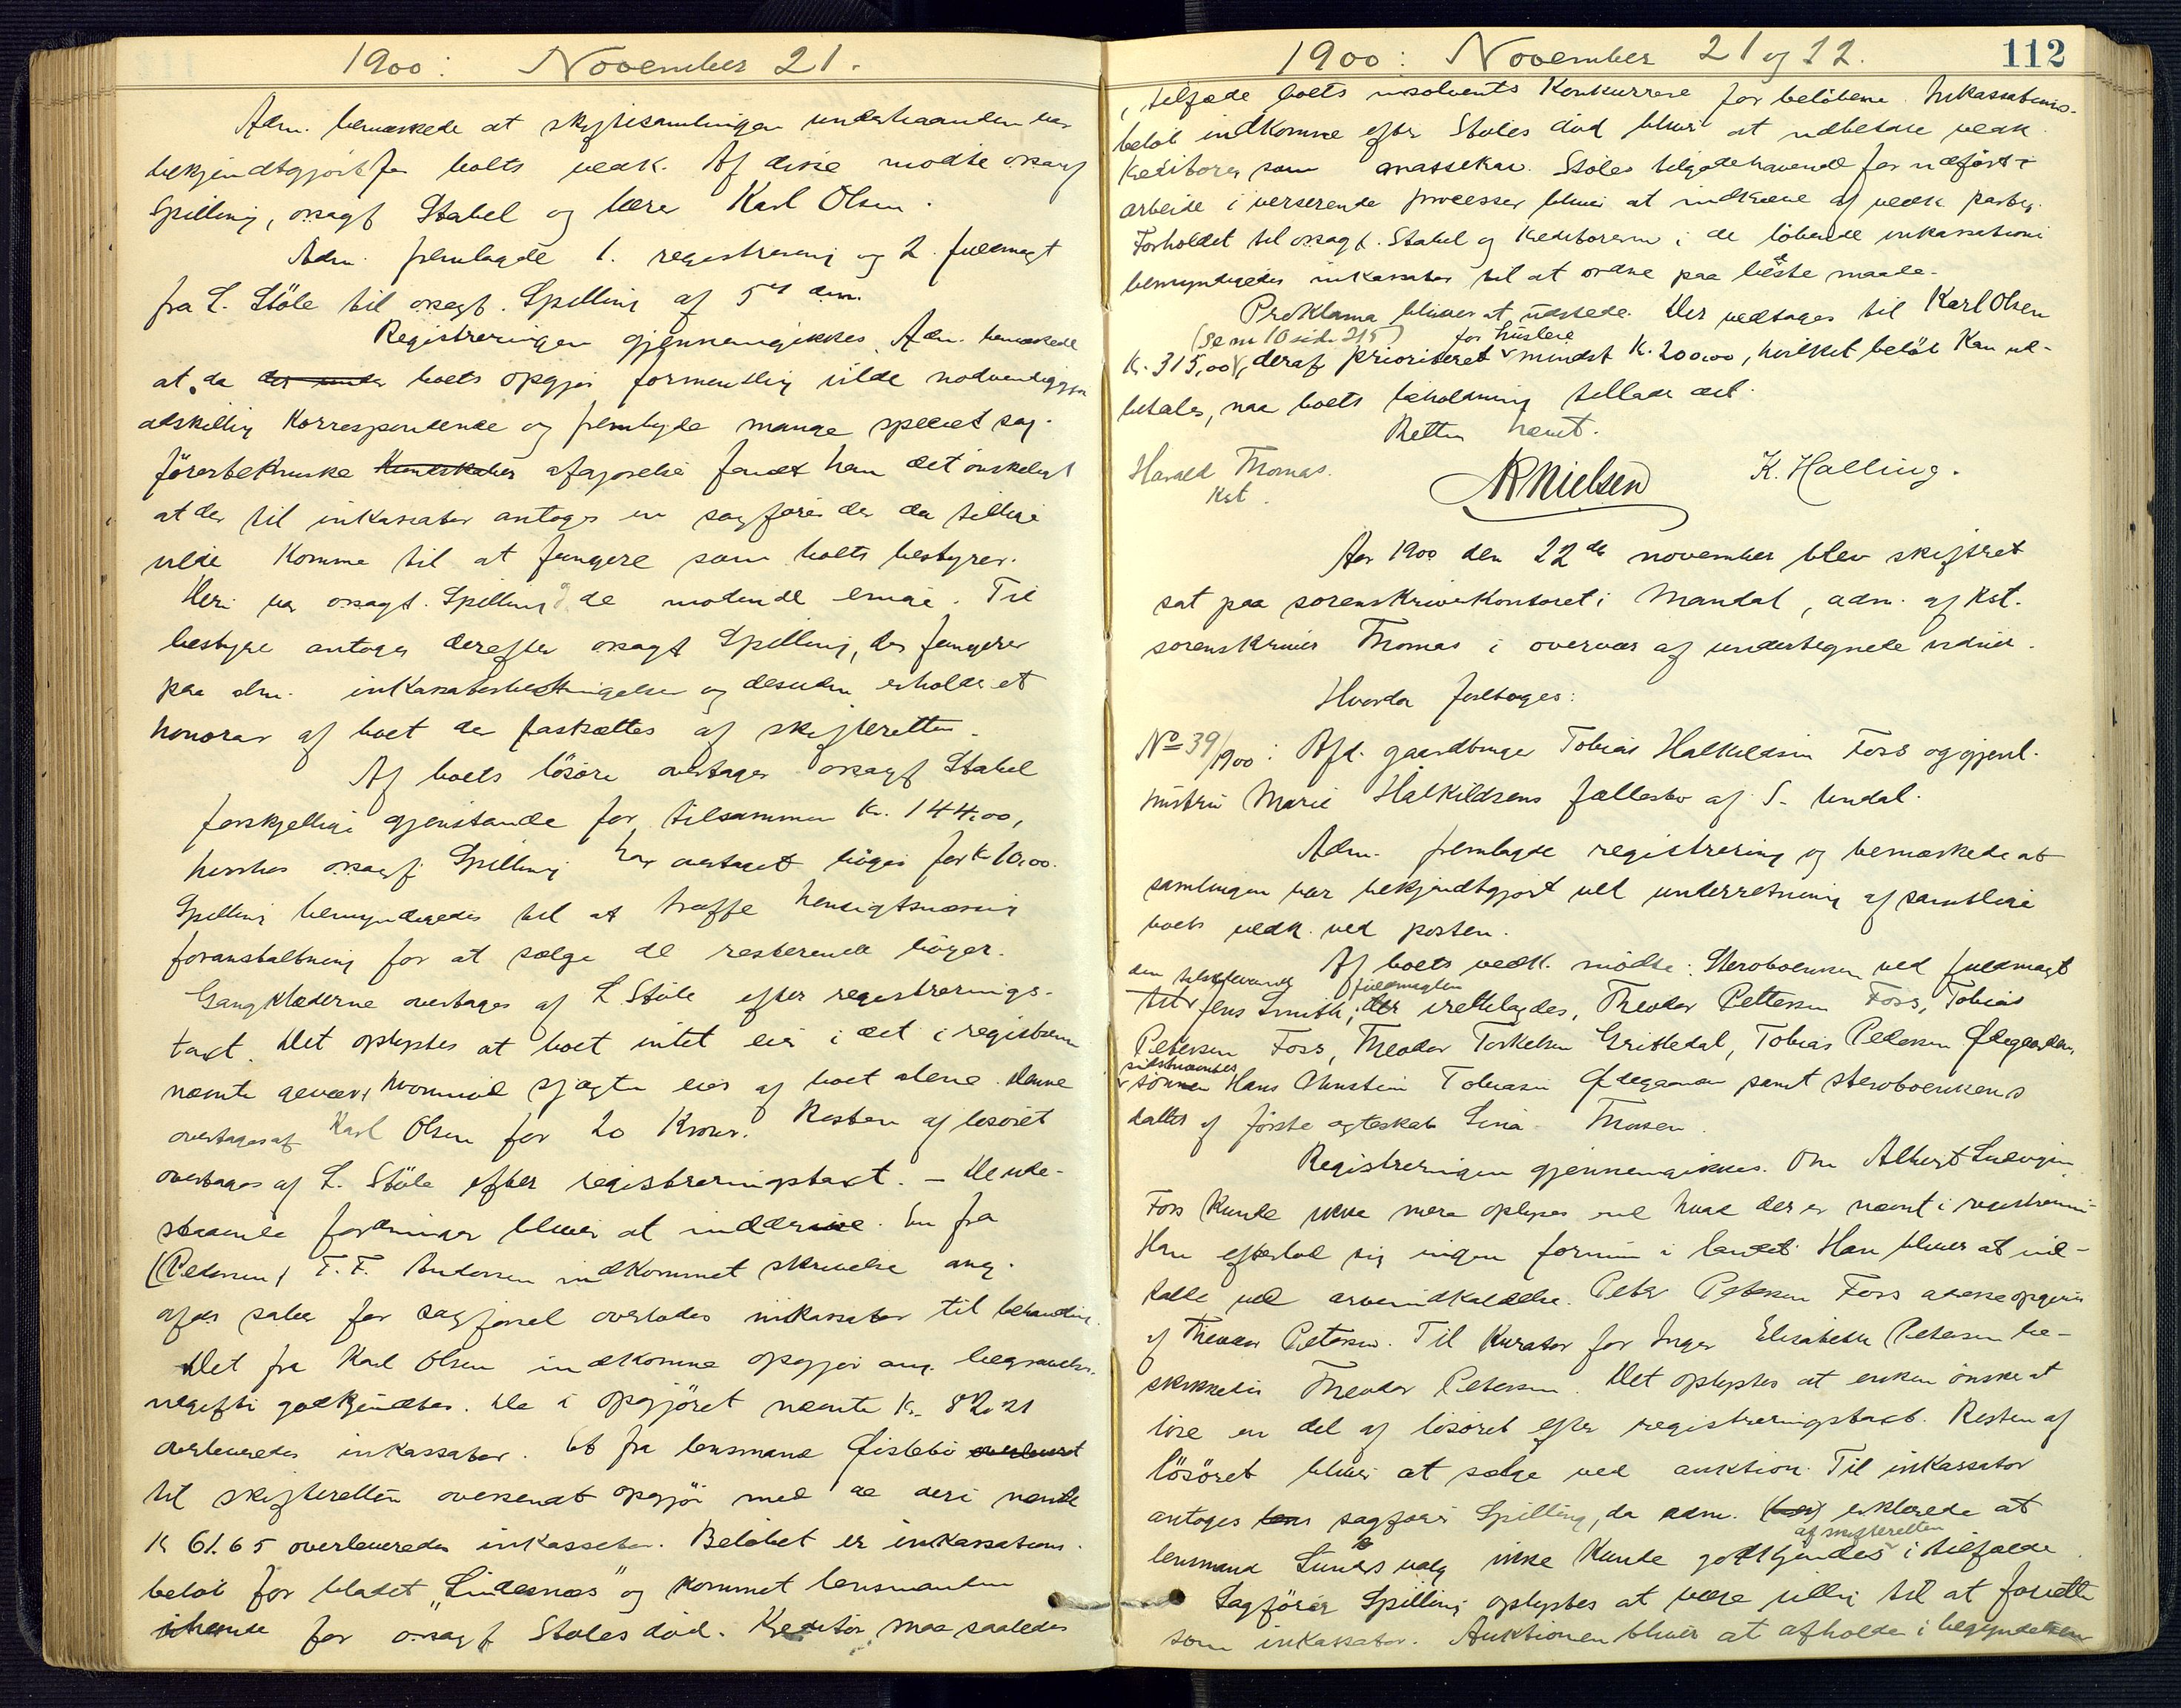 1900: November 21.
Adm. bemærkede at skiftesamlingen underhaanden var
bekjendtgjort for boets vedk. Af disse mødte orsagf
Spilling, orsagf Stabel og lærer Karl Olsen.
Adm. fremlagde 1. registrering og 2. fuldmagt
fra L. Støle til orsagf. Spilling af 5te dm.
Registreringen gjennemgikkes. Adm. bemærkede
at da der under boets opgjør formentlig vilde nødvendiggjøre
adskillig Korrespondence og frembyde mange specielt sag-
førerbekunske Kundskaber afgjørelse fandt han det ønskeligt
at der til inkassator antoges en sagfører der da tillige
vilde komme til at fungere som boets bestyrer.
Heri var orsagf. Spilling og de mødende enige. Til
bestyrer antoges derefter orsagf Spilling, der fungerer
paa alm. inkassatorbetingelser og desuden erholder et
honorar af boet der fastsættes af skifteretten.
Af boets løsøre overtager orsagf Stabel
forskjellige gjenstande for tilsammen Kr. 144,00,
hvorhos orsagf. Spilling har overtaget bøger for Kr 10,00.
Spilling bemyndigedes til at træffe hensigtsmæssig
foranstaltning for at sælge de resterende bøger.
Gangklæderne overtages af L Støle efter registrerings-
taxt. Det oplystes at boet intet eier i det i registreringen
nævnte gevær, hvorimod sjægte eies af boet alene. Denne
overtages af Karl Olsen for 20 Kroner. Resten af løsøret
overtages af L. Støle efter registreringstaxt. – De ude-
staaende fordringer bliver at inddrive. En fra
(Pedersen) T. F. Andersen indkommet skrivelse ang.
afdøs salær for sagførsel overlodes inkassator til behandling.
Det fra Karl Olsen indkomne opgjør ang. begravelses-
udgifter godkjendtes. De i opgjøret nævnte Kr. 82.21
overleveredes inkassator. Et fra lensmand Øislebø overleveret
til skifteretten oversendt opgjør med de deri nævnte
Kr 61.65 overleveredes inkassator. Beløbet er inkassations-
beløb for bladet "Lindesnæs" og kommet lensmanden
ihænde før orsagf Støles død. Kreditor maa saaledes
1900: November 21 og 22. 112
i tilfælde boets insolvents Konkurrere for beløbene. Inkassations-
beløb indkomne efter Støles død bliver at udbetale vedk
Kreditorer som massekrav. Støles tilgodehavende for udført
arbeide i verserende processer bliver at indkræve af vedk parter.
Forholdet til orsagf. Stabel og Kreditorerne i de løbende inkassationer
bemyndigedes inkassator til at ordne paa bedste maade.
Proklama bliver at udstede. Der vedtages til Karl Olsen
(se nr 10 side 215) for husleie
Kr. 315,00, deraf prioriteret mindst Kr. 200,00, hvilket beløb Kan ud-
betales, naar boets beholdning tillader det.
Retten hævet.
Harald Thomas. NRNielsen K. Halling.
Kst.
Aar 1900 den 22de november blev skifteret
sat paa sorenskriverkontoret i Mandal, adm. af Kst.
sorenskriver Thomas i overvær af undertegnede vidner.
Hvorda foretoges:
No 39/1900: Afd. gaardbruger Tobias Halkildsen Foss og gjenl.
hustru Marie Halkildsens fællesbo af S. Undal.
Adm. fremlagde registrering og bemærkede at
samlingen var bekjendtgjort ved underretning af samtlige
boets vedk. ved posten.
Af boets vedk. mødte: Sterboenken ved fuldmagt
den tilstedeværende fuldmagten
til Jens Smith, der irettelagdes, Theodor Pettersen Foss, Tobias
Petersen Foss, Theodor Torkelsen Grisledal, Tobias Pedersen Ødegaarden,
sidstnævntes
sønnen Hans Christian Tobiasen Ødegaarden samt sterboenkens
datter af første egteskab Lina Thorsen.
Registreringen gjennemgikkes. Om Albert Ludvigsen
Foss Kunde ikke mere oplyses end hvad der er nævnt i registreringen.
Han efterlod sig ingen formue i landet. Han bliver at ind-
kalde ved arveindkaldelse. Peter Petersen Foss adresse opgives
af Theodor Petersen. Til Kurator for Inger Elisabeth Petersen be-
skikkedes Theodor Petersen. Det oplystes at enken ønsker at
løse en del af løsøret efter registreringstaxt. Resten af
løsøret bliver at sælge ved auktion. Til inkassator
antoges sagfører Spilling, da adm. erklærede at
af skifteretten
lensmand Lundes valg ikke Kunde godkjendes i tilfælde.
Sagfører Spilling oplystes at være villig til at forrette
som inkassator. Auktionen bliver at afholde i begyndelsen